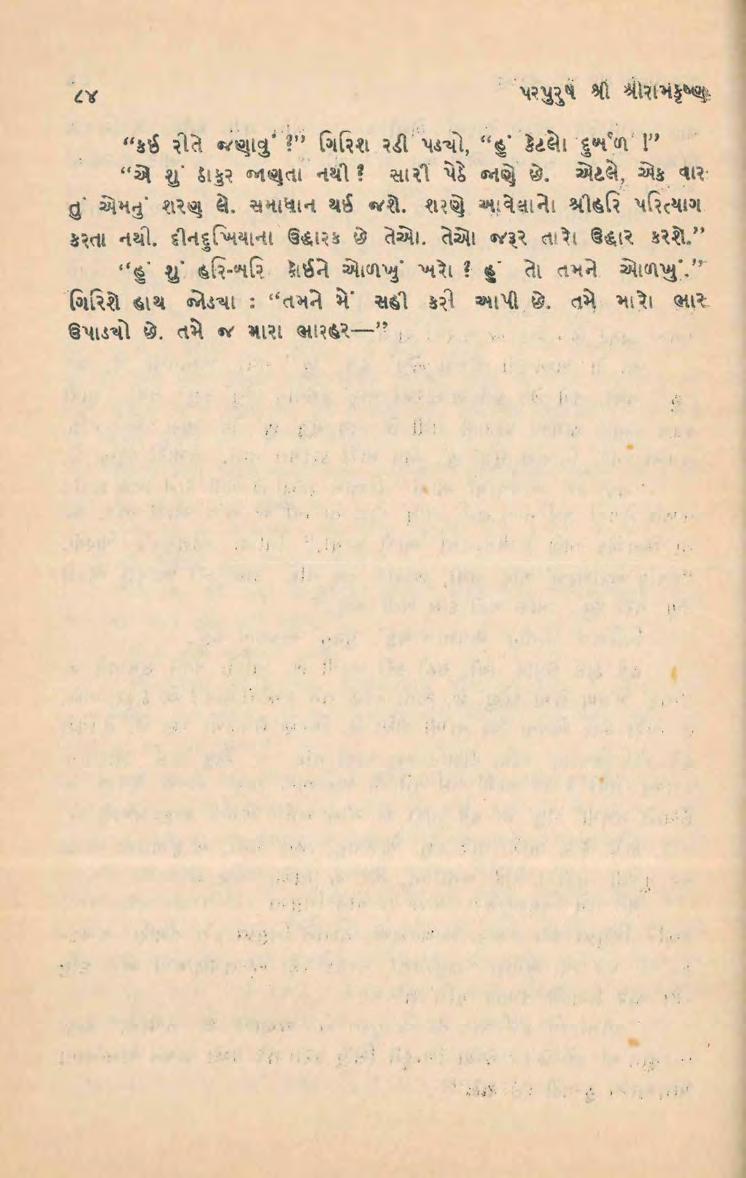 ૮૪ પરપુરુષ શ્રી શ્રીરામકૃષ્ણ
“કઈ રીતે જણાવું ?” ગિરિશ રડી પડ્યો, “હું કેટલો દુર્બળ !”
“એ શું ઠાકુર જાણતા નથી ? સારી પેઠે જાણે છે. એટલે, એક વાર
તું એમનું શરણ લે. સમાધાન થઈ જશે. શરણે આવેલાનો શ્રીહરિ પરિત્યાગ
કરતા નથી. દીનદુખિયાના ઉદ્ધારક છે તેઓ. તેઓ જરૂર તારો ઉદ્ધાર કરશે.”
“હું શું હરિ-બરિ કોઈને ઓળખું ખરો ? હું તો તમને ઓળખું.”
ગિરિશે હાથ જોડ્યા : “તમને મેં સહી કરી આપી છે. તમે મારો ભાર
ઉપાડ્યો છે. તમે જ મારા ભારહર—”